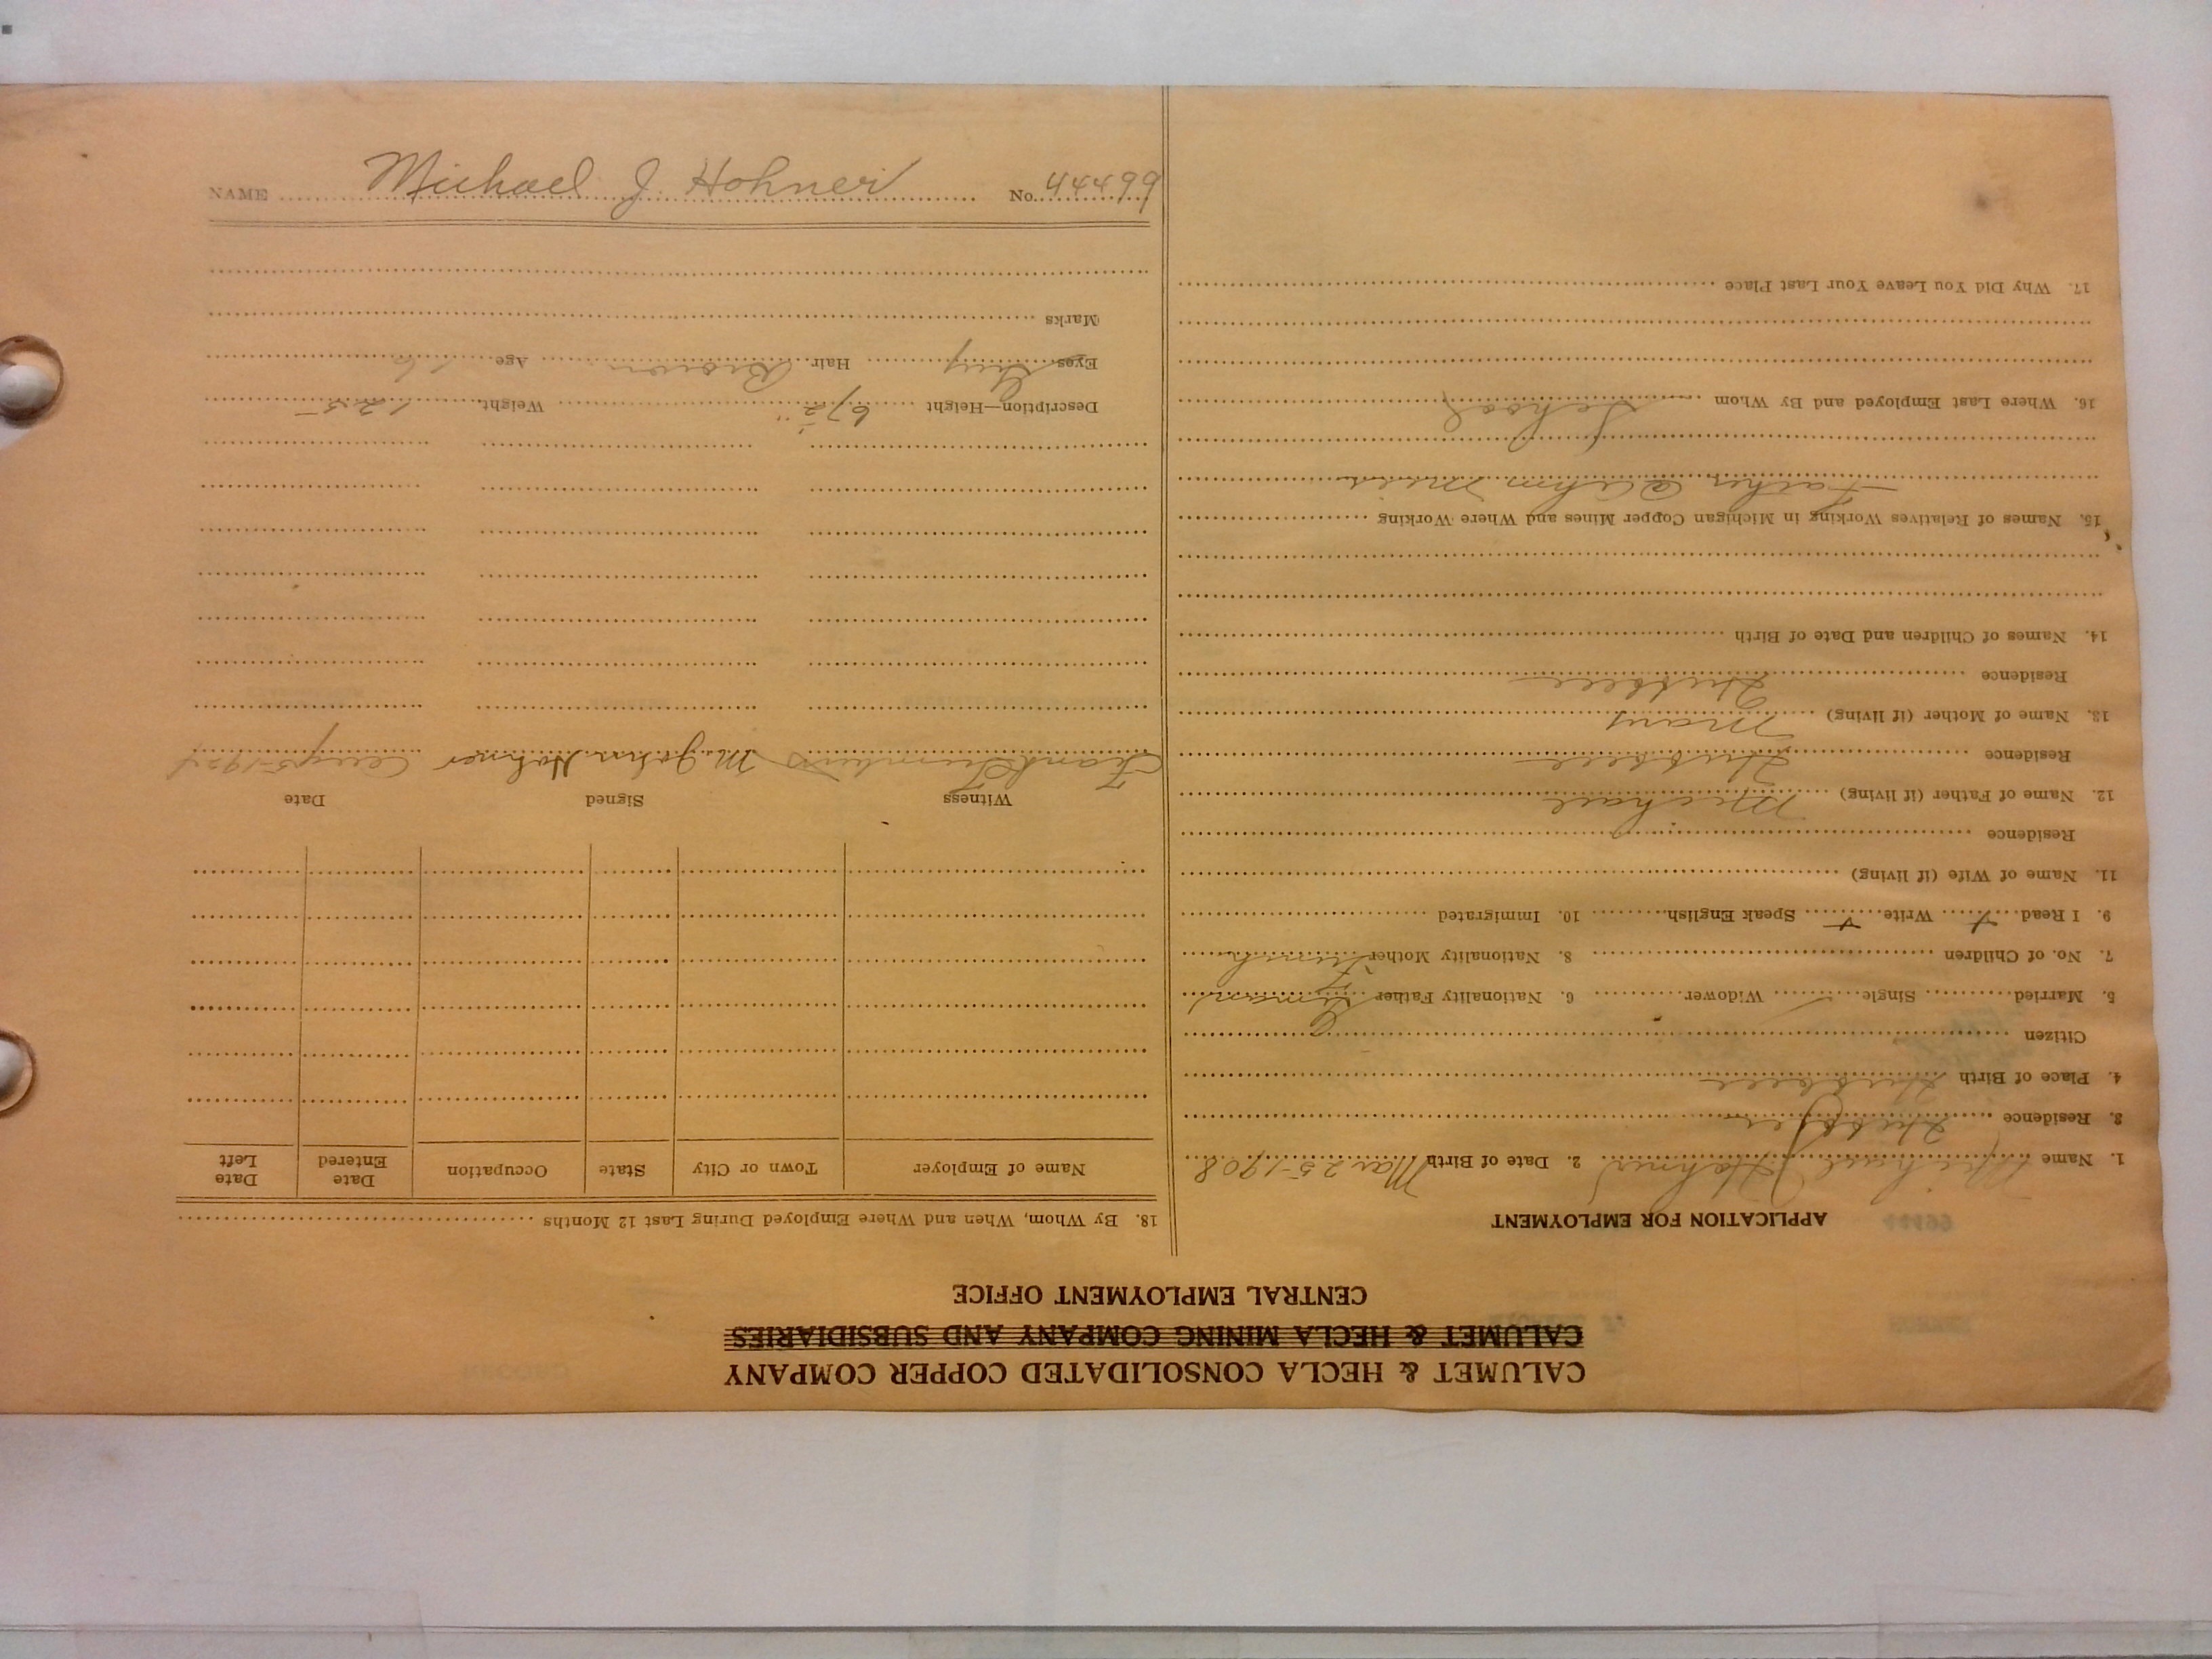 CALUMET & HECLA CONSOLIDATED COPPER COMPANY
CALUMET & HECLA MINING COMPANY AND SUBSIDIARIES
CENTRAL EMPLOYMENT OFFICE
44499
APPLICATION FOR EMPLOYMENT
1. Name Michael Hohner 2. Date of Birth Mar 25-1908
3. Residence Hubbell
4. Place of Birth Hubbell
Citizen
5. Married Single ✓ Widower 6. Nationality Father German
7. No. of Children 8. Nationality Mother French
9. I Read + Write + Speak English 10. Immigrated
11. Name of Wife (if living)
Residence
12. Name of Father (if living) Michael
Residence Hubbell
13. Name of Mother (if living) Mary
Residence Hubbell
14. Names of Children and Date of Birth
15. Names of Relatives Working in Michigan Copper Mines and Where Working
Father @ Ahm Mill
16. Where Last Employed and By Whom School
17. Why Did You Leave Your Last Place
18. By Whom, When and Where Employed During Last 12 Months
Name of Employer Town or City State Occupation Date Entered Date Left
Witness Signed Date
Frank M. John Hohner Aug 5-1924
Description—Height Weight 125
Eyes Grey Hair Brown Age 16
Marks
NAME Michael J. Hohner No. 44499